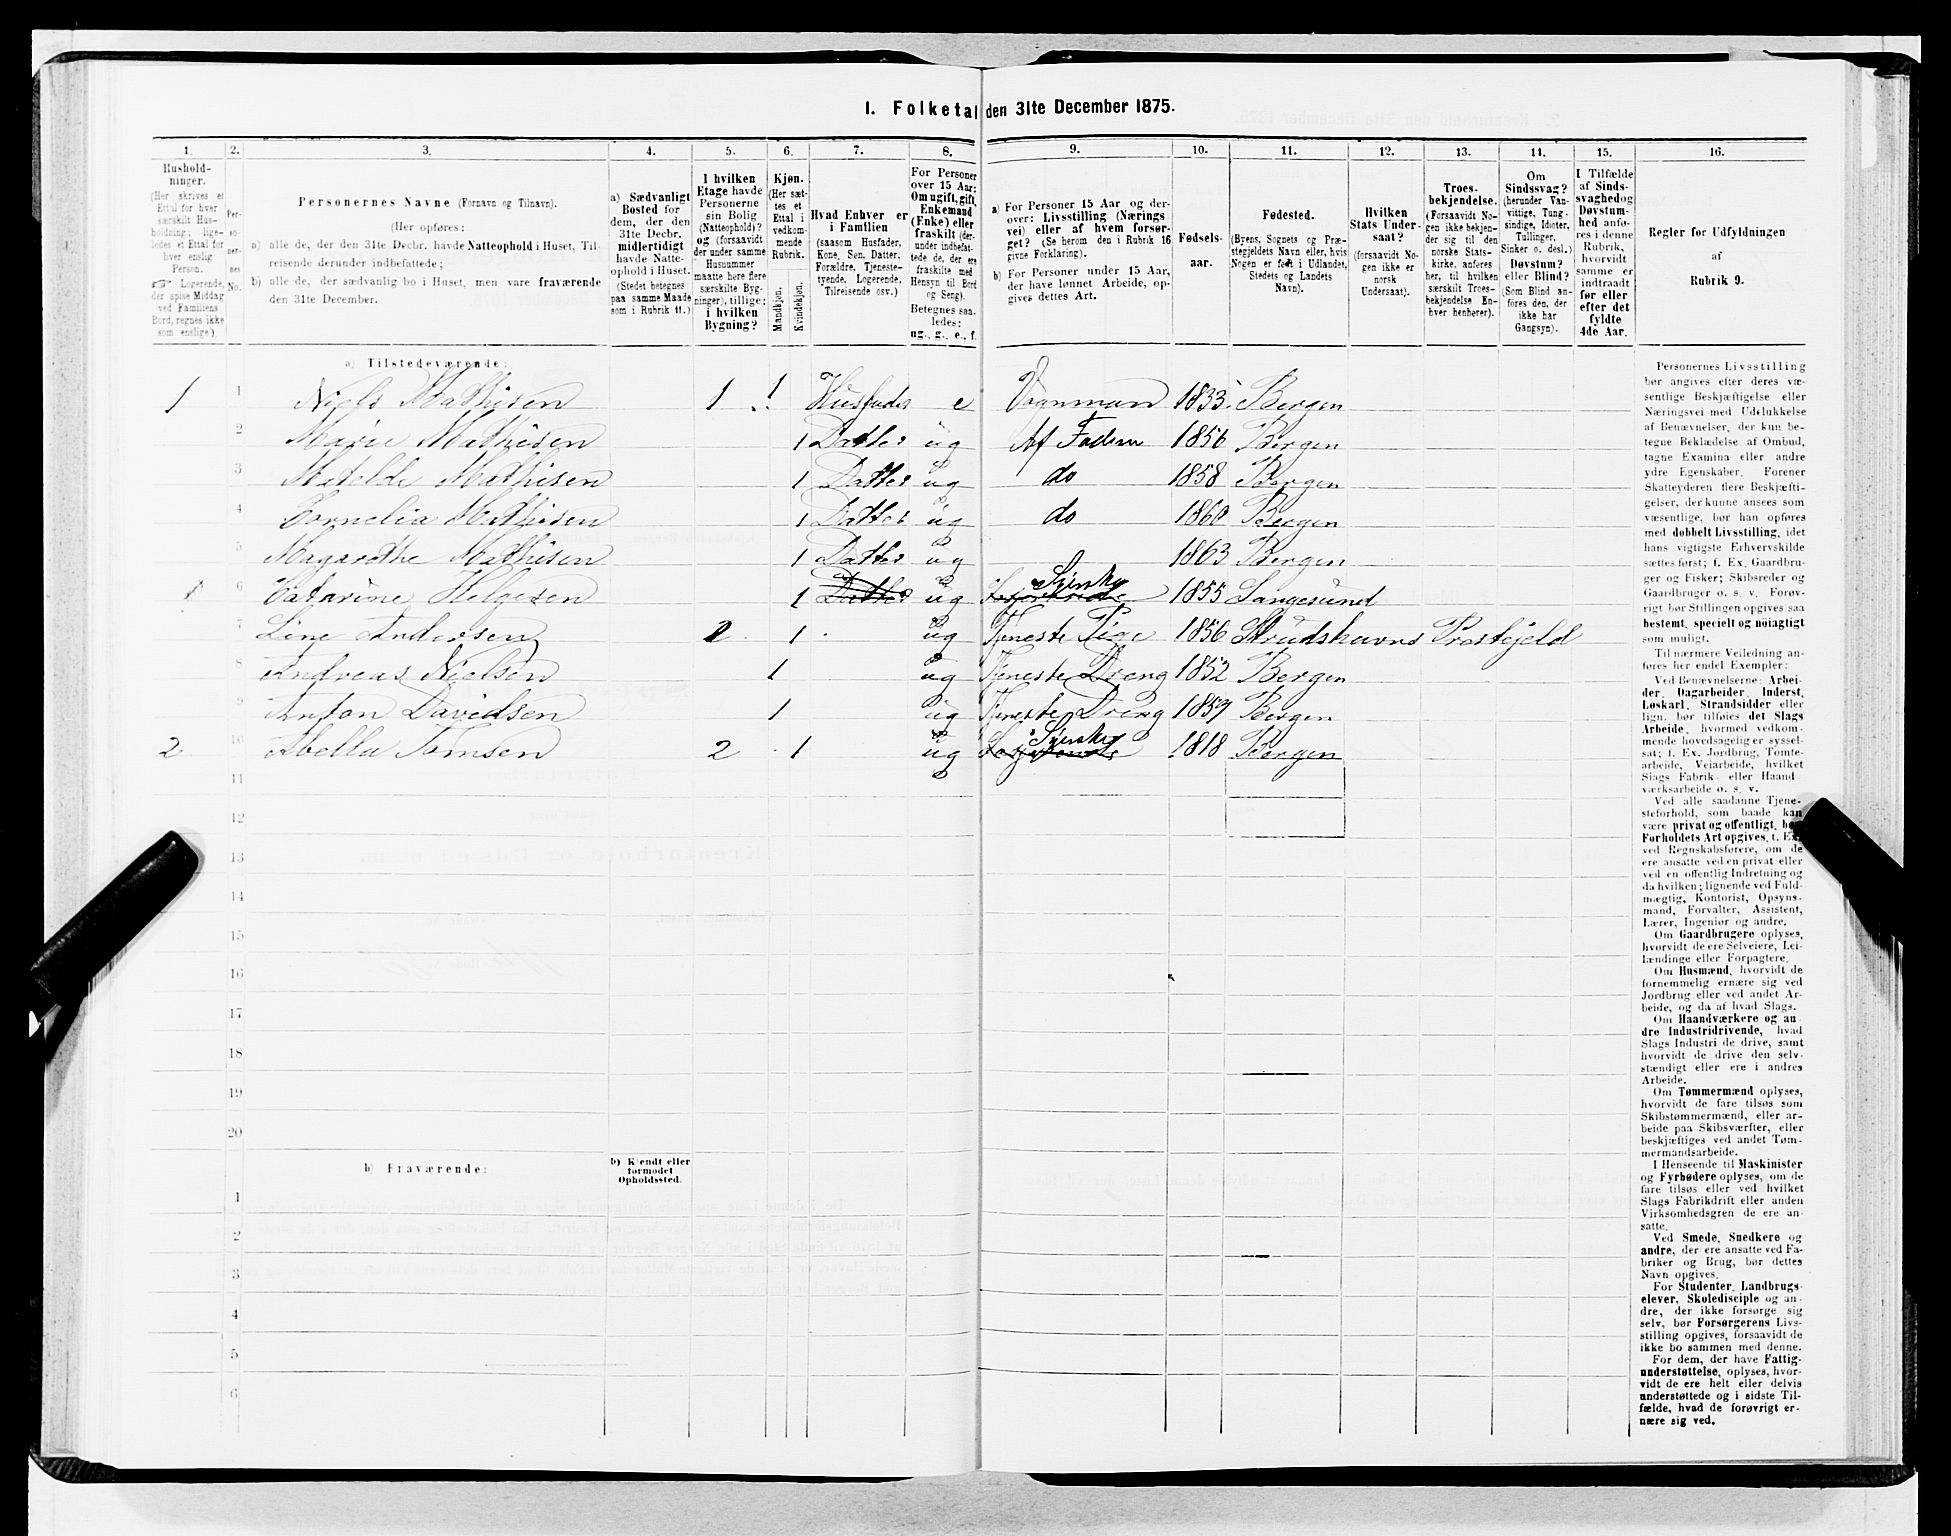 1. Folketal den 31te December 1875.
1. 2. 3. 4. 5. 6. 7. 8. 9. 10. 11. 12. 13. 14. 15. 16.
Hushold-
ninger.
(Her skrives et
Ettal for hver
særskilt Hus-
holdning; lige-
ledes et Ettal for
hver enslig
Person.
☞ Logerende,
der spise Middag
ved Familiens
Bord, regnes ikke
som enslige).
Per-
so-
ner-
nes
No.
Personernes Navne (Fornavn og Tilnavn).
(Her opføres:
a) alle de, der den 31te Decbr. havde Natteophold i Huset, Til-
reisende derunder indbefattede;
b) alle de, der sædvanlig bo i Huset, men vare fraværende
den 31te December.
a) Sædvanligt
Bosted for
dem, der den
31te Decbr.
midlertidigt
havde Natte-
ophold i Huset.
(Stedet betegnes
paa samme Maade
som i Rubrik 11.)
I hvilken
Etage havde
Personerne
sin Bolig
(Natteophold)?
og (forsaavidt
der under samme
Husnummer
maatte høre flere
særskilte Byg-
ninger), tillige:
i hvilken
Bygning?
Kjøn.
(Her sæt-
tes et
Ettal i
vedkom-
mende
Rubrik.
Mandkjøn.
Kvindekjøn.
Hvad Enhver er
i Familien
(saasom Husfader,
Kone, Søn, Datter,
Forældre, Tjeneste-
tyende, Logerende,
Tilreisende osv.)
For Personer
over 15 Aar:
Om ugift, gift,
Enkemand
(Enke) eller
fraskilt (der-
under indbefat-
tede de, der ere
fraskilte med
Hensyn til Bord
og Seng).
Betegnes saa-
ledes:
ug., g., e., f.
a) For Personer 15 Aar og der-
over: Livsstilling (Nærings
vei) eller af hvem forsør-
get? (Se herom den i Rubrik 16
givne Forklaring).
b) For Personer under 15 Aar,
der have lønnet Arbeide, op-
gives dettes Art.
Fødsels-
aar.
Fødested.
(Byens, Sognets og Præ-
stegjeldets Navn eller, hvis
Nogen er født i Udlandet,
Stedets og Landets
Navn).
Hvilken
Stats Under-
saat?
(forsaavidt No-
gen ikke er
norsk
Undersaat).
Troes-
bekjendelse.
(Forsaavidt No-
gen ikke bekjen-
der sig til den
norske Stats-
kirke, anføres
her, til hvilken
særskilt Troes-
bekjendelse En-
hver henhører).
Om
Sindssvag?
(herunder Van-
vittige, Tung-
sindige, Idioter,
Tullinger,
Sinker o. desl.)
Døvstum?
eller Blind?
(Som Blind an-
føres den, der
ikke har
Gangsyn).
I Tilfælde
af Sinds-
svaghed og
Døvstum-
hed anfø-
res i denne
Rubrik,
hvorvidt
samme er
indtraadt
før eller
efter det
fyldte
4de Aar.
Regler for Udfyldningen
af
Rubrik 9.
a) Tilstedeværende:
1 1 Niels Mathisen 1 1 Husfader e Vognmand 1833 Bergen
2 Marie Mathisen 1 Datter ug Af Faderen 1856 Bergen
3 Matelde Mathisen 1 Datter ug do 1858 Bergen
4 Cornelia Mathisen 1 Datter ug do 1860 Bergen
5 Magarethe Mathisen 1 Datter ug 1863 Bergen
1 6 Catarine Helgesen 1 Datter ug Syerske 1855 Langesund
7 Line Andersen 2 1 ug Tjeneste Pige 1856 Strudshavns Prestejeld
8 Andreas Nielsen 1 ug Tjeneste Dreng 1852 Bergen
9 Anton Davidsen 1 ug Tjeneste Dreng 1857 Bergen
2 10 Abella Tomsen 2 1 ug Syerske 1818 Bergen
11
12
13
14
15
16
17
18
19
20
b) Fraværende:
b) Kjendt eller
formodet
Opholdssted.
1
2
3
4
5
6
Personernes Livsstilling
bør angives efter deres væ-
sentlige Beskjæftigelse eller
Næringsvei med Udelukkelse
af Benævnelser, der kun be-
tegne Beklædelse af Ombud,
tagne Examina eller andre
ydre Egenskaber. Forener
Skatteyderen flere Beskjæfti-
gelser, der kunne ansees som
væsentlige, bør han opføres
med dobbelt Livsstilling, idet
hans vigtigste Erhvervskilde
sættes først; f. Ex. Gaardbru-
ger og Fisker; Skibsreder og
Gaardbruger o. s. v. Forøv-
rigt bør Stillingen opgives saa
bestemt, specielt og nöiagtigt
som muligt.
Til nærmere Veiledning an-
føres her endel Exempler:
Ved Benævnelserne: Arbei-
der, Dagarbeider, Inderst,
Løskarl, Strandsidder eller
lign. bør tilføies det Slags
Arbeide, hvormed vedkom-
mende hovedsagelig er syssel-
sat; f. Ex. Jordbrug, Tomte-
arbeide, Veiarbeide, hvilket
Slags Fabrik- eller Haand-
værksarbeide o. s. v.
Ved alle saadanne Tjene-
steforhold, som baade kan
være privat og offentligt, bør
Forholdets Art opgives, f. Ex.
ved Regnskabsførere, om de
ere ansatte ved en privat eller
ved en offentlig Indretning og
da hvilken; lignende ved Fuld-
mægtig, Kontorist, Opsyns-
mand, Forvalter, Assistent,
Lærer, Ingeniør og andre.
Om Gaardbrugere oplyses,
hvorvidt de ere Selveiere, Lei-
lændinge eller Forpagtere.
Om Husmænd, hvorvidt de
fornemmelig ernære sig ved
Jordbrug eller ved andet Ar-
beide, og da af hvad Slags.
Om Haandværkere og an-
dre Industridrivende, hvad
Slags Industri de drive, samt
hvorvidt de drive den selv-
stændigt eller ere i andres
Arbeide.
Om Tømmermænd oplyses,
hvorvidt de fare tilsøs som
Skibstømmermænd, eller ar-
beide paa Skibsværfter, eller
beskjæftiges ved andet Tøm-
mermandsarbeide.
I Henseende til Maskinister
og Fyrbødere oplyses, om de
fare tilsøs eller ved hvilket
Slags Fabrikdrift eller anden
Virksomhedsgren de ere an-
satte.
Ved Smede, Snedkere og
andre, der ere ansatte ved Fa-
briker og Brug, bør dettes
Navn opgives.
For Studenter, Landbrugs-
elever, Skoledisciple og an-
dre, der ikke forsørge sig
selv, bør Forsørgerens Livs-
stilling opgives, forsaavidt de
ikke bo sammen med denne.
For dem, der have Fattig-
understøttelse, oplyses, hvor-
vidt de ere helt eller delvis
understøttede og i sidste Til-
fælde, hvad de forøvrigt er-
nære sig ved.